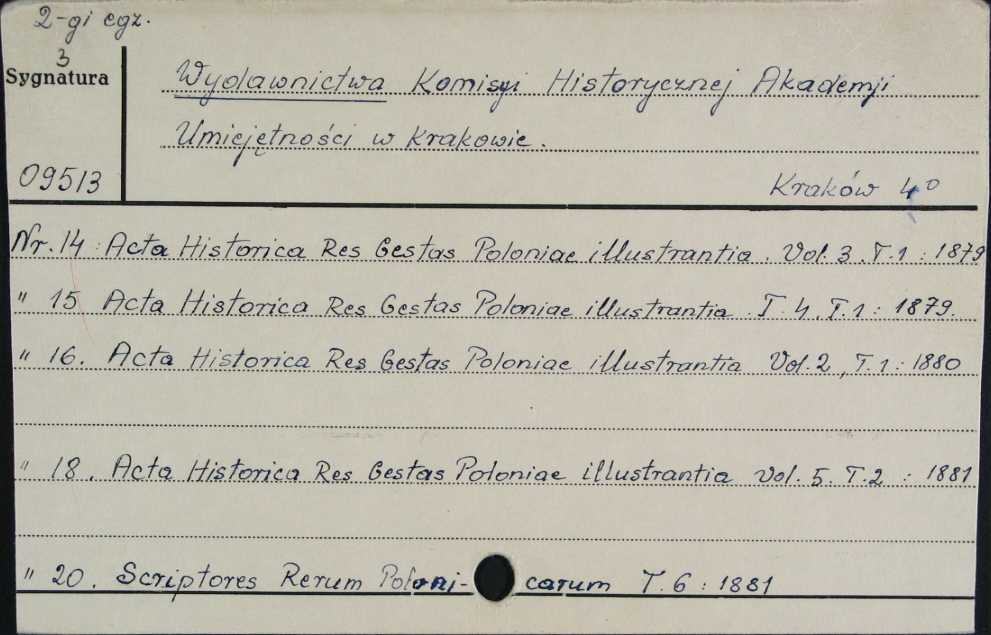 2-gi egz.
3
Sygnatura
Wydawnictwa Komisyi Historycznej Akademji
Umiejętności w Krakowie.
09513
Kraków 4°
Nr. 14 : Acta Historica Res Gestas Poloniae illustrantia. Vol. 3. T.1 : 1879
" 15 Acta Historica Res Gestas Poloniae illustrantia. T. 4. T.1 : 1879.
" 16. Acta Historica Res Gestas Poloniae illustrantia Vol. 2, T.1 : 1880
" 18. Acta Historica Res Gestas Poloniae illustrantia Vol. 5. T.2 : 1881
" 20. Scriptores Rerum Poloni- carum T. 6 : 1881